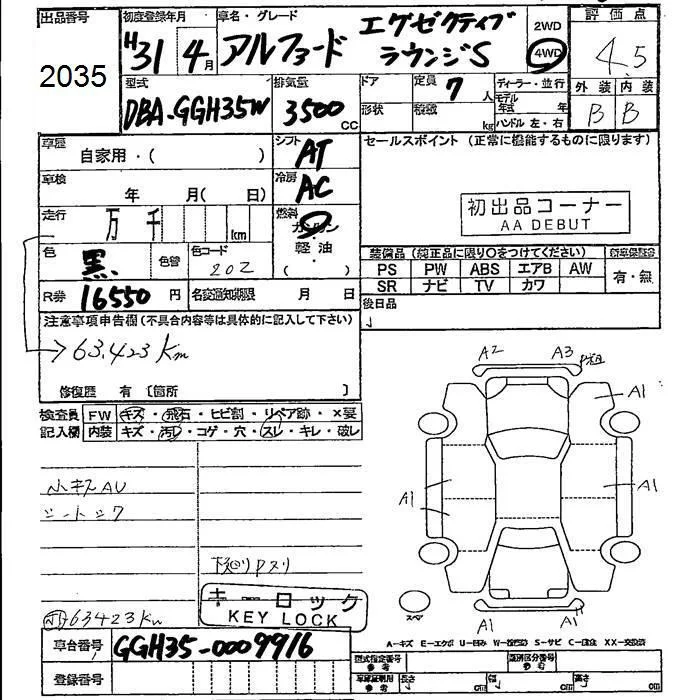 出品番号
2035
初度登録年月
H31年4月
車名・グレード
アルファード エグゼクティブ
ラウンジS
2WD
4WD
評価点
4.5
外装 内装
B B
型式
DBA-GGH35W
排気量
3500 CC
ドア
形状
定員 7 人
積載 kg
ディーラー・並行
モデル年式 年
ハンドル 左・右
車歴
自家用・( )
シフト
AT
車検
年 月( 日)
冷房
AC
走行
万 千 km
燃料
ガソリン
軽油
( ・ )
色
黒
色替
色コード
202
R券
16550 円
名変通知期限 月 日
セールスポイント (正常に機能するものに限ります)
初出品コーナー
AA DEBUT
装備品 (純正品に限り○をつけてください)
新車保証書
PS PW ABS エアB AW
SR ナビ TV カワ
有・無
後日品
注意事項申告欄(不具合内容等は具体的に記入して下さい)
→63,423 Km
修復歴 有 〔箇所 〕
検査員
記入欄
FW キズ・飛石・ヒビ割・リペア跡・×要
内装 キズ・汚レ・コゲ・穴・スレ・キレ・破レ
小キズAU
シートシワ
下廻りPスリ
63423 Km
キーロック
KEY LOCK
A2 A3
A1
A1 A1
A1 A1
スペア
A-キズ E-エクボ U-凹み W-(波打ち) S-サビ C-腐食 XX-交換済
車台番号
GGH35-0009916
登録番号
型式指定番号
参考
類別区分番号
参考
車庫証明用
参考
長さ cm
幅 cm
高さ cm